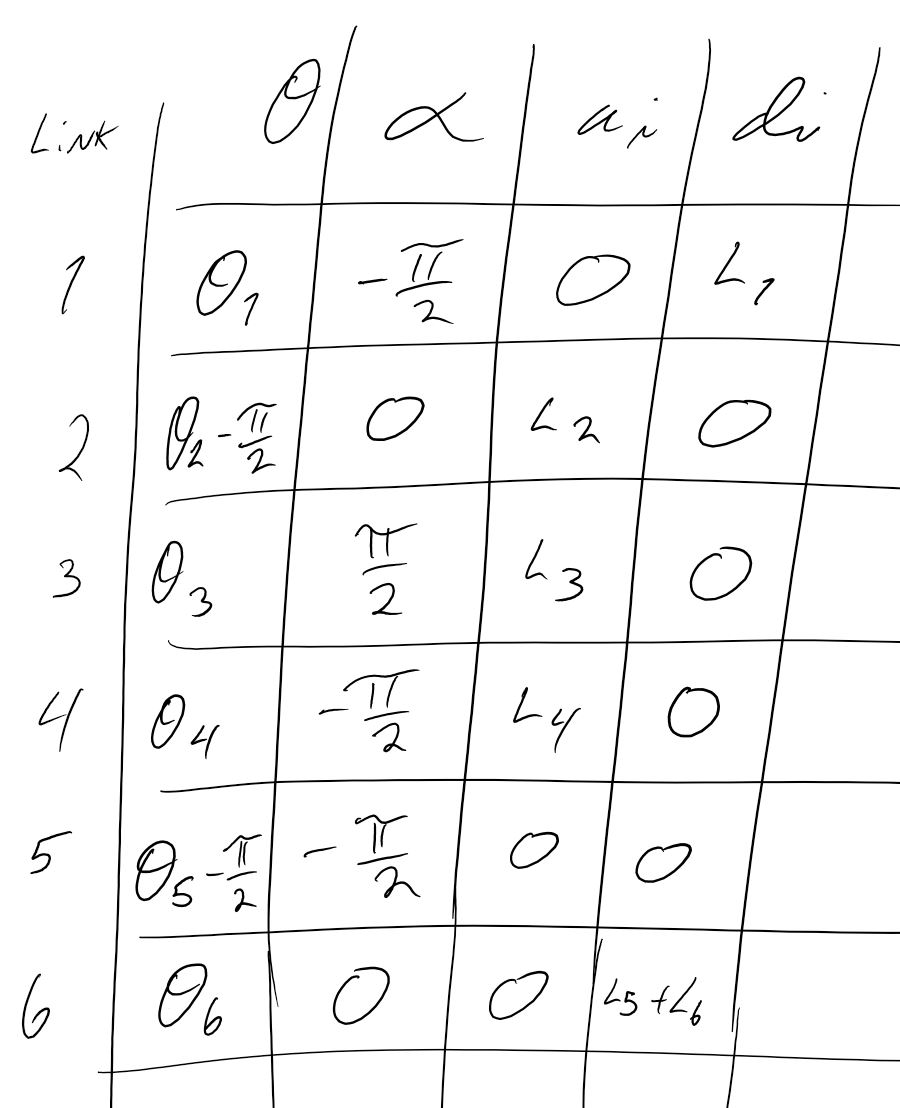 Link θ α ai di
1 θ1 -π/2 0 L1
2 θ2-π/2 0 L2 0
3 θ3 π/2 L3 0
4 θ4 -π/2 L4 0
5 θ5-π/2 -π/2 0 0
6 θ6 0 0 L5+L6